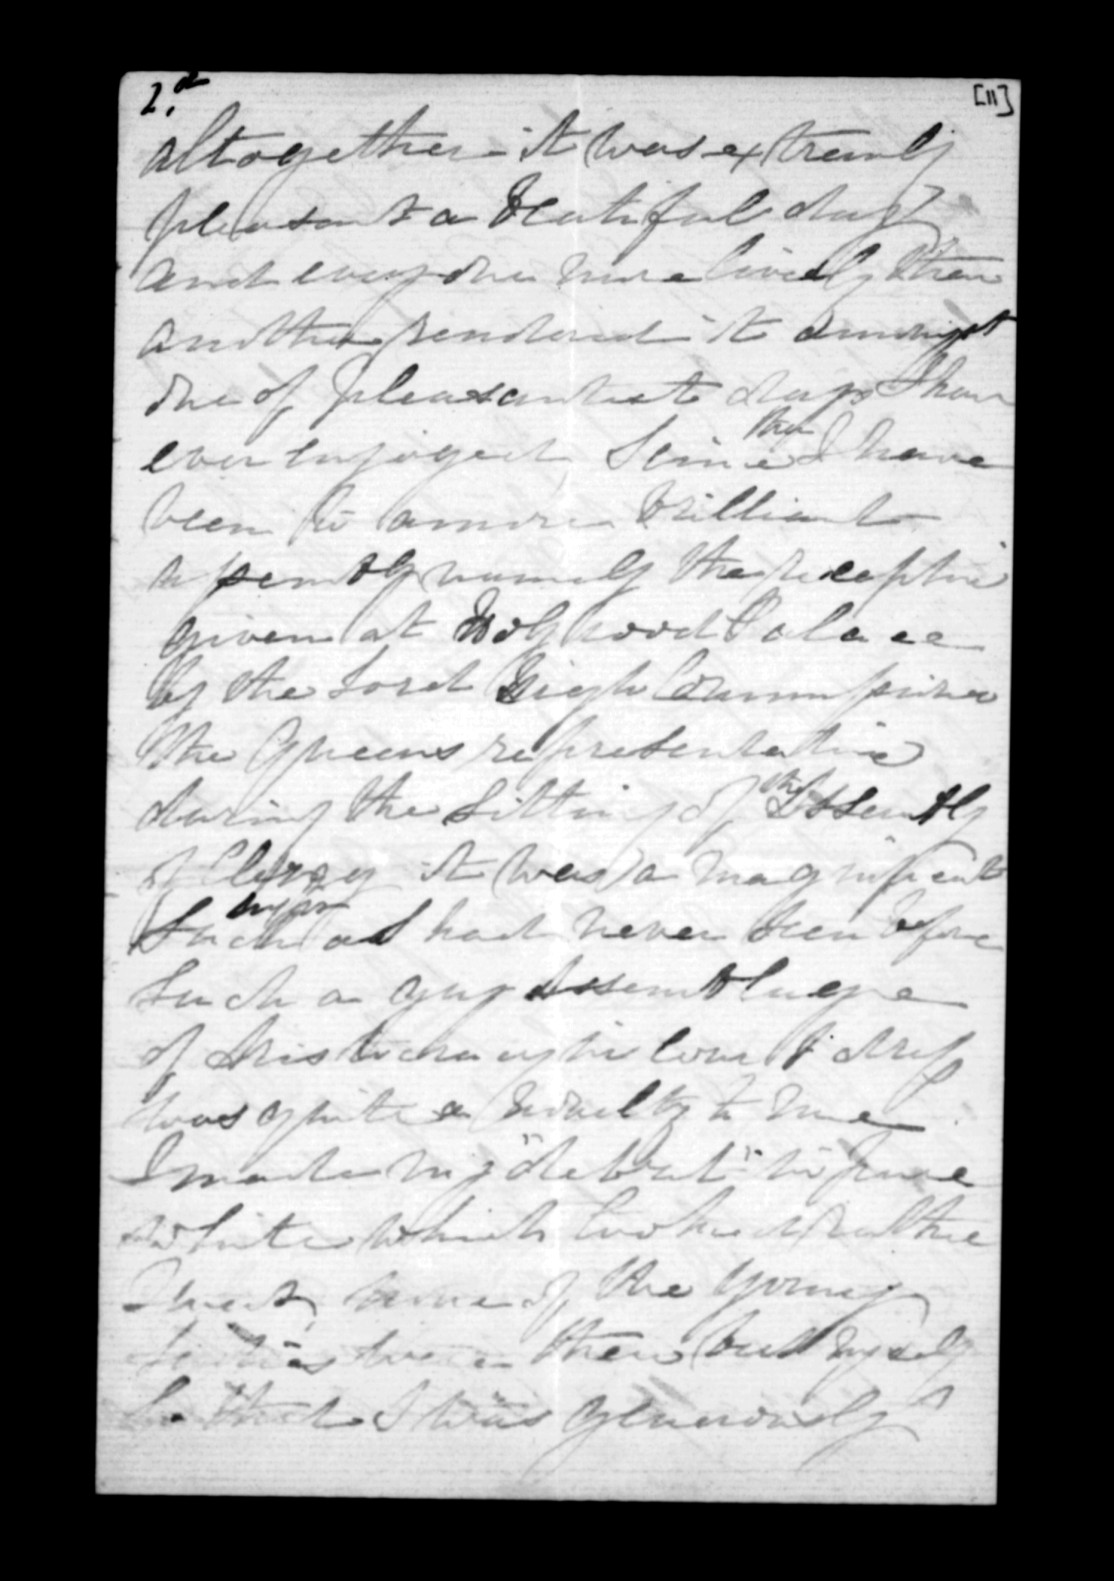 2.d [11]
altogether it was extremly
pleasant a beatiful day
and every one more lively than
another rendered it amongst
one of pleasantest days I have
ever enjoyed, Since then I have
been to a more brilliant
assembly namely the receptio
given at Holyrood Palace
by the Lord High Commissioner
the Queens representative
during the Sitting of the Assembly
of Clergy it was a magnificent
Such as I had never seen before
Such a gay assemblage
of Aristocracy in Court dress
was quite a novelty to me
I made my "debut" in pure
white which looked rather
neat, none of the young
ladies were there but myself
So that I was generously